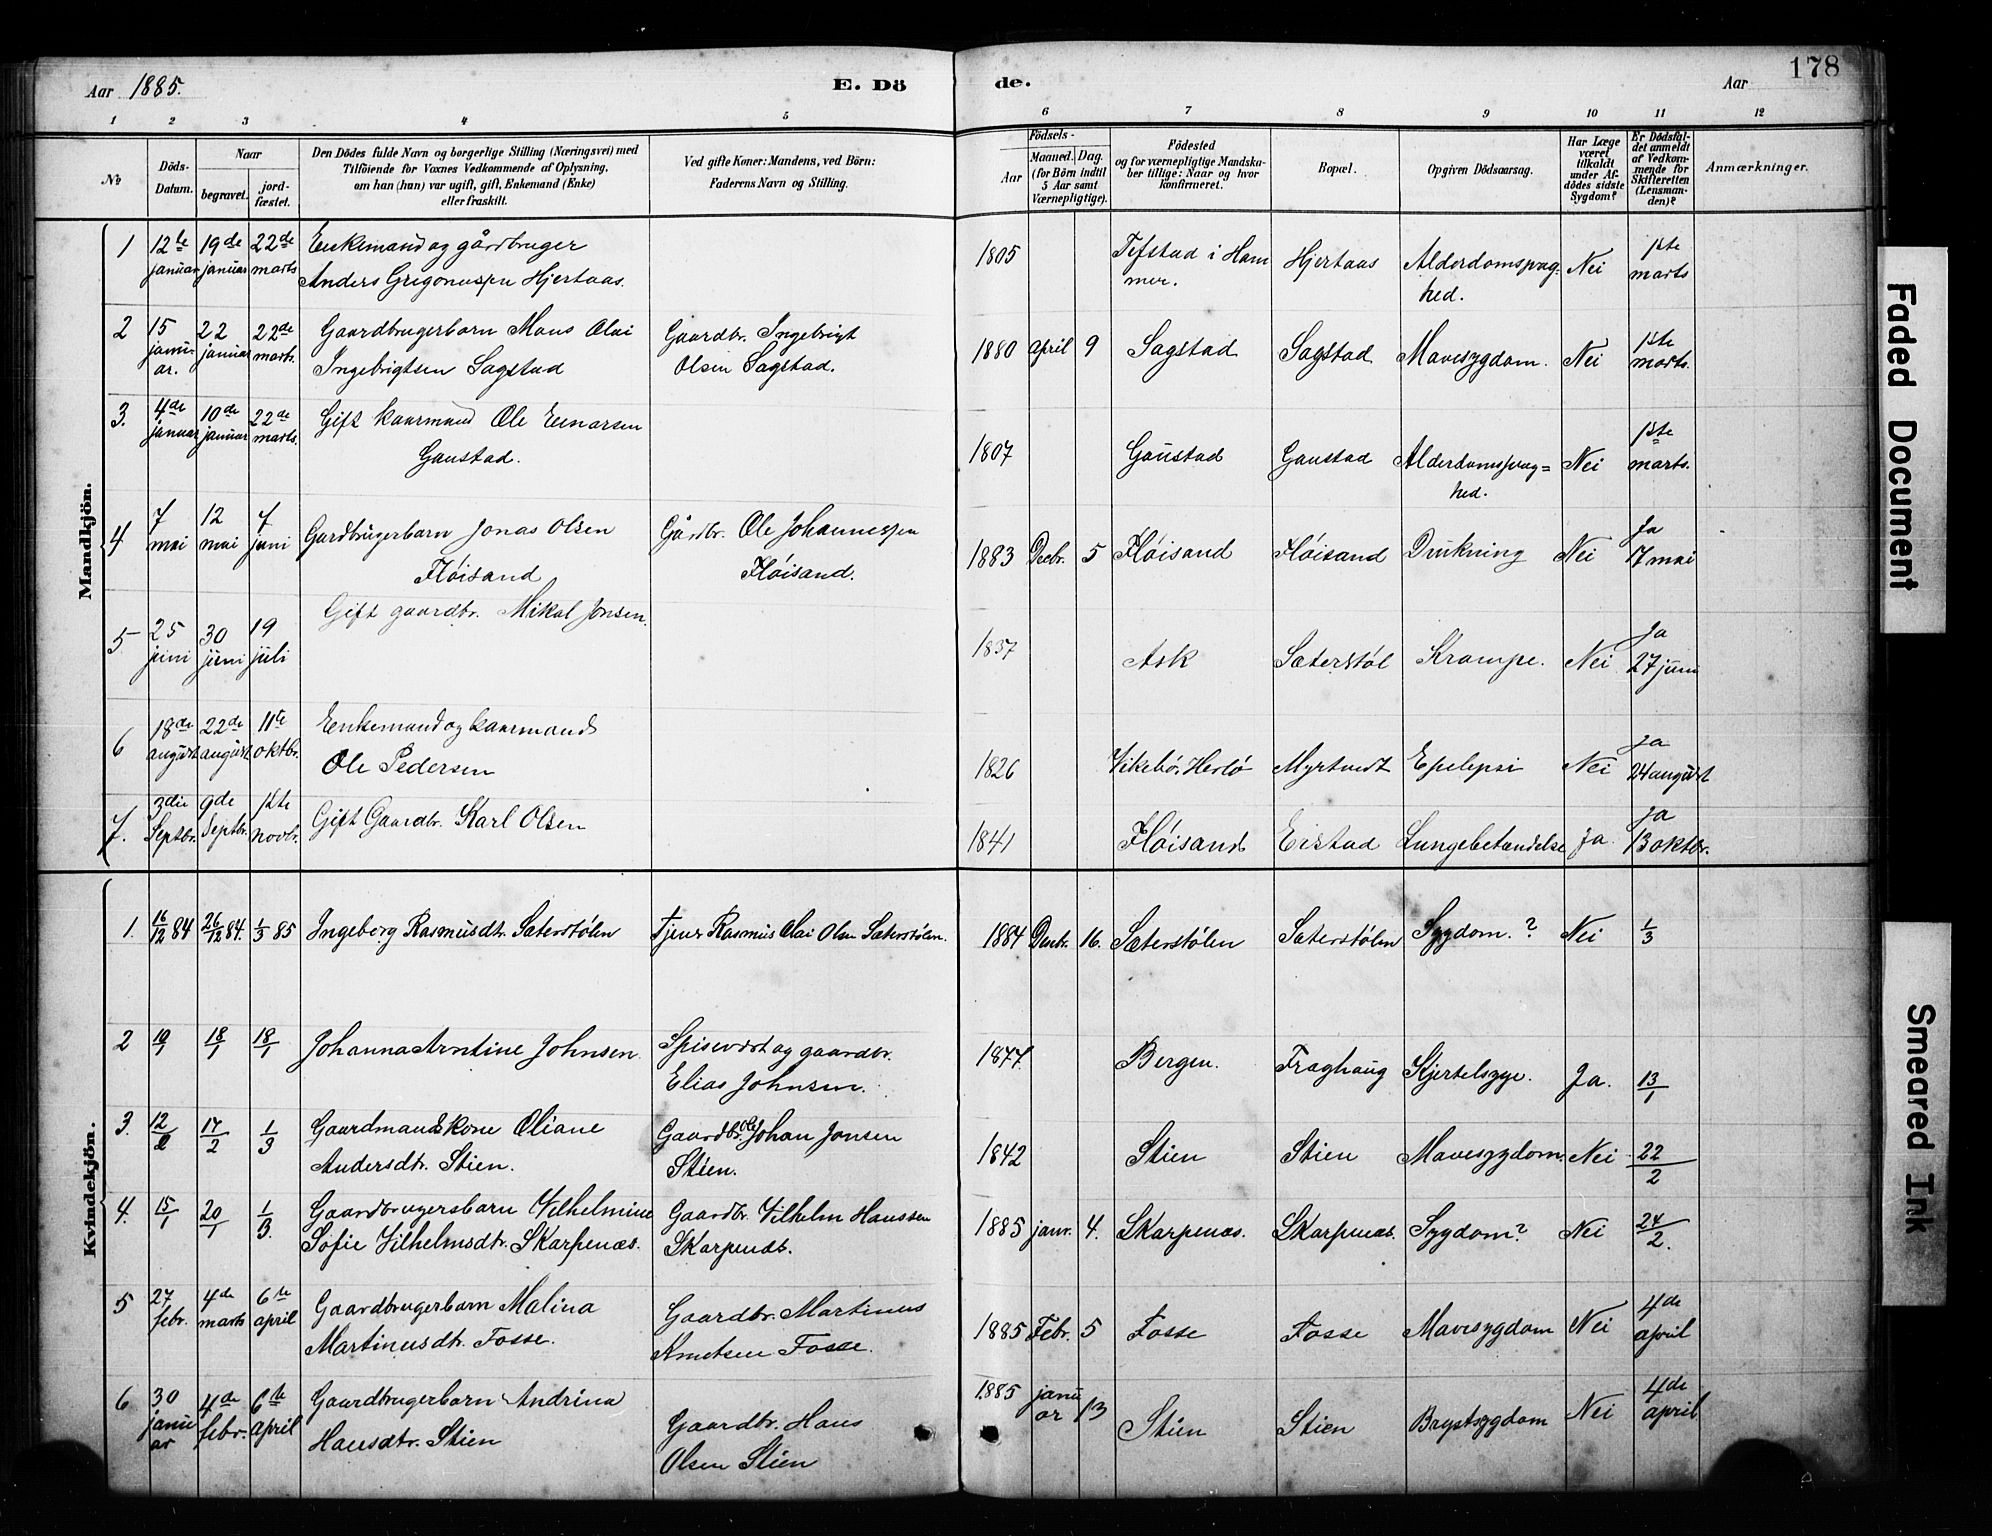 Aar 1885.
E. Dö
de.
Aar
178
1 2 3 4 5 6 7 8 9 10 11 12
No
Döds-
Datum.
Naar
begravet.
jord-
fæstet.
Den Dödes fulde Navn og borgerlige Stilling (Næringsvei) med
Tilföiende for Voxnes Vedkommende af Oplysning,
om han (hun) var ugift, gift, Enkemand (Enke)
eller fraskilt.
Ved gifte Koner: Mandens, ved Börn:
Faderens Navn og Stilling.
Födsels-
Aar
Maaned. Dag.
(for Börn indtil
5 Aar samt
Værnepligtige).
Födested
og for værnepligtige Mandska-
ber tillige: Naar og hvor
konfirmeret.
Bopæl.
Opgiven Dödsaarsag.
Har Læge
været
tilkaldt
under Af-
dödes sidste
Sygdom?
Er Dödsfal-
det anmeldt
af Vedkom-
mende for
Skifteretten
(Lensman-
den)?
Anmærkninger.
Mandkjön.
1 12te januar 19de januar 22de marts Enkemand og gårdbruger
Anders Gregoriussen Hjertaas. 1805 Tefstad i Ham
mer. Hjertaas Alderdomssvag-
hed. Nei 1ste marts
2 15 janu-
ar. 22 januar 22de marts. Gaardbrugerbarn Mons Olai
Ingebrigtsen Sagstad Gaardbr. Ingebrigt
Olsen Sagstad. 1880 april 9 Sagstad Sagstad Mavesygdom. Nei 1ste marts.
3. 4de januar 10de januar 22de marts. Gift kaarmand Ole Einarsen
Gaustad. 1807 Gaustad Gaustad Alderdomssvag=
hed. Nei 1ste marts.
4 7 mai 12 mai 7 juni Gardbrugerbarn Jonas Olsen
Fløisand Gårdbr. Ole Johannessen
Fløisand. 1883 Decbr. 5 Fløisand Fløisand Drukning Nei Ja
17 mai
5 25 juni 30 juni 19 juli Gift gaardbr. Mikal Jonsen. 1837 Ask Sæterstøl Krampe. Nei Ja
27 juni
6 18de august 22de august 11te oktbr. Enkemand og kaarmand
Ole Pedersen 1826 Vikebø, Herlø Myrtvedt Epelepsi Nei Ja
24 august
7. 3die Septbr. 9de Septbr. 1ste novbr. Gift Gaardbr. Karl Olsen 1841 Fløisand Eistad Lungebetændelse Ja. Ja
13 oktbr.
Kvindekjön.
1. 16/12 84 26/12 84. 1/3 85 Ingeborg Rasmusdtr. Sæterstølen Tjener Rasmus Olai Olsen Sæterstølen. 1884 Decbr. 16. Sæterstølen Sæterstølen Sygdom.? Nei 1/3
2 10/1 18/1 18/1 Johanna Arntine Johnsen. Spisevært og gaardbr.
Elias Johnsen. 1877. Bergen. Fraghaug Kjertelsyge. Ja. 13/1
3. 12/2 17/2 1/3 Gaardmandskone Oliane
Andersdtr. Stien. Gaardbr. Ole Johan Jonsen
Stien. 1842 Stien Stien Mavesygdom. Nei 22/2
4. 15/1 20/1 1/3. Gaardbrugersbarn Vilhelmine
Sofie Vilhelmsdtr. Skarpenæs. Gaardbr. Vilhelm Hanssen
Skarpenæs. 1885 janr. 4. Skarpenæs. Skarpenæs. Sygdom? Nei 24/2.
5 27 febr. 4de marts 6te april Gaardbrugerbarn Malina
Martinusdtr. Fosse. Gaardbr. Martinus
Knutsen Fosse. 1885 Febr. 5 Fosse Fosse Mavesygdom Nei 4de april
6 30 janu
ar 4de febr. 6te april Gaardbrugerbarn Andrina
Hansdtr. Stien Gaardbr. Hans
Olsen Stien 1885 janu
ar 13 Stien Stien Brystsygdom Nei 4de april
Faded Document
Smeared Ink